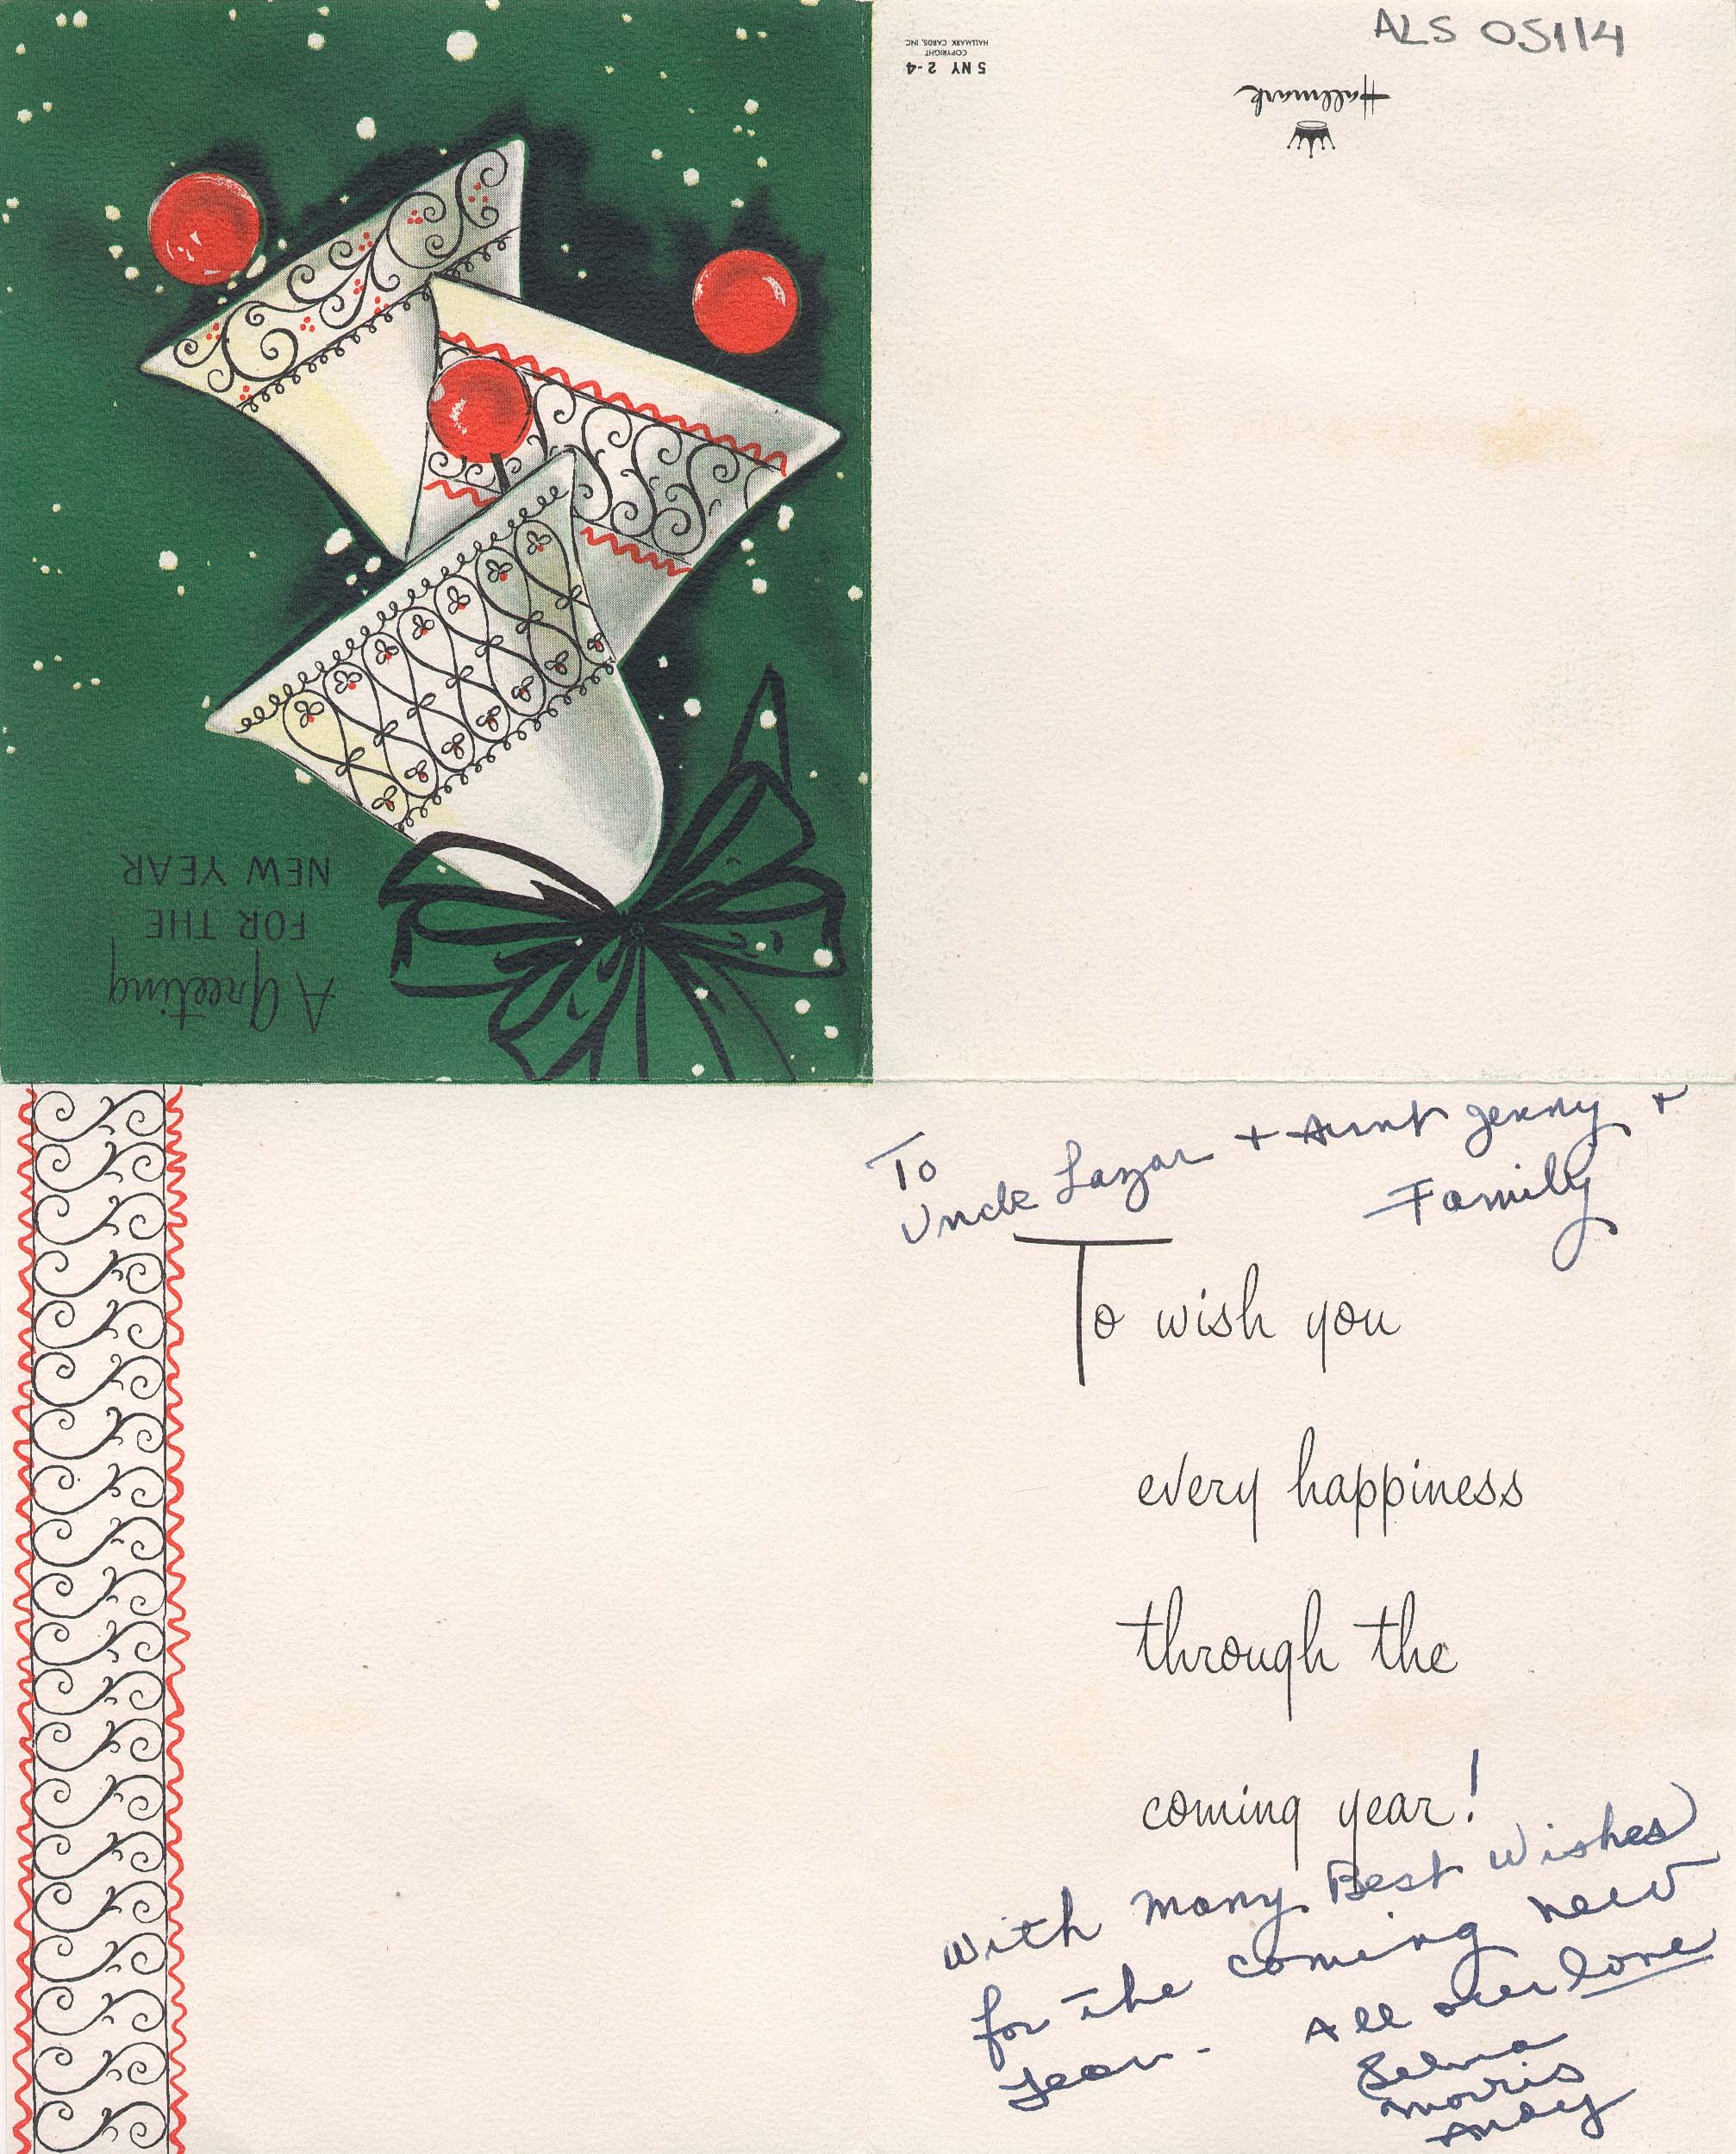 ALS 05114
Hallmark
5 NY 2-4
COPYRIGHT
HALLMARK CARDS, INC.
A Greeting
FOR THE
NEW YEAR
To
Uncle Lazar + Aunt Jenny +
Family
To wish you
every happiness
through the
coming year!
With Many Best Wishes
for the coming new
year. All our love
Selma
Morris
Andy